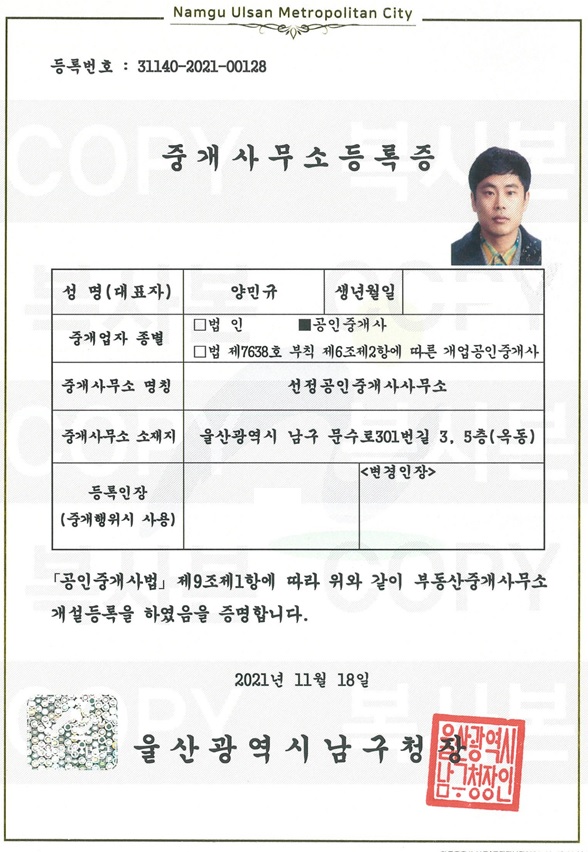 Namgu Ulsan Metropolitan City
등록번호 : 31140-2021-00128
중개사무소등록증
성 명(대표자) 양민규 생년월일
중개업자 종별 □법 인 ■공인중개사
□법 제7638호 부칙 제6조제2항에 따른 개업공인중개사
중개사무소 명칭 선정공인중개사사무소
중개사무소 소재지 울산광역시 남구 문수로301번길 3, 5층(옥동)
등록인장
(중개행위시 사용)
<변경인장>
「공인중개사법」 제9조제1항에 따라 위와 같이 부동산중개사무소
개설등록을 하였음을 증명합니다.
2021년 11월 18일
울산광역시남구청장
울산광역시
남구청장인
COPY 복사본
복사본 COPY
COPY 복사본
복사본 COPY
COPY 복사본